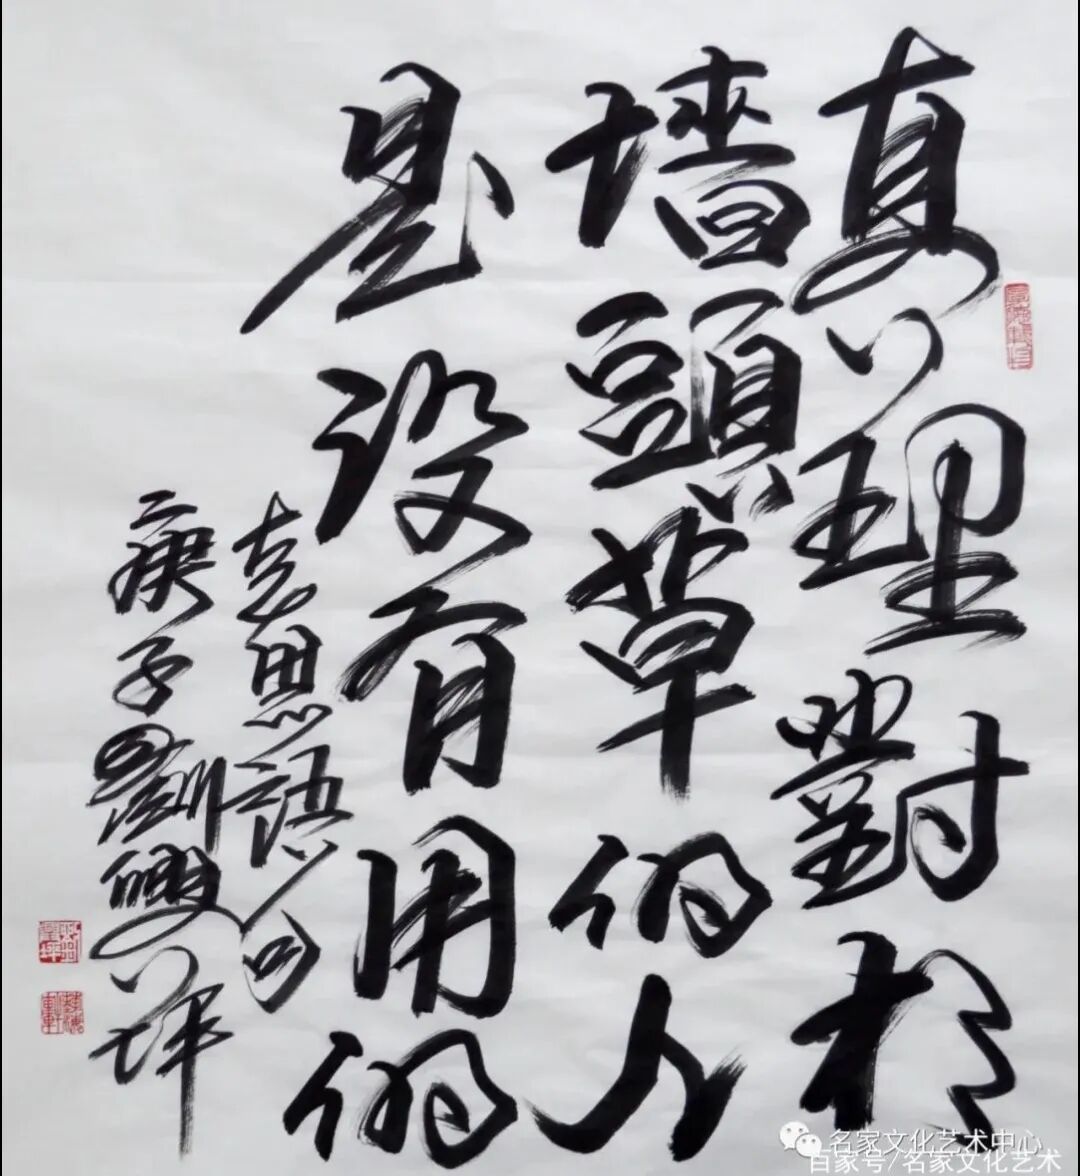 真理對於
墻頭草的人
是没有用的
克思語句
庚子劉雙坪
名家文化艺术中心
百家号/名家文化艺术